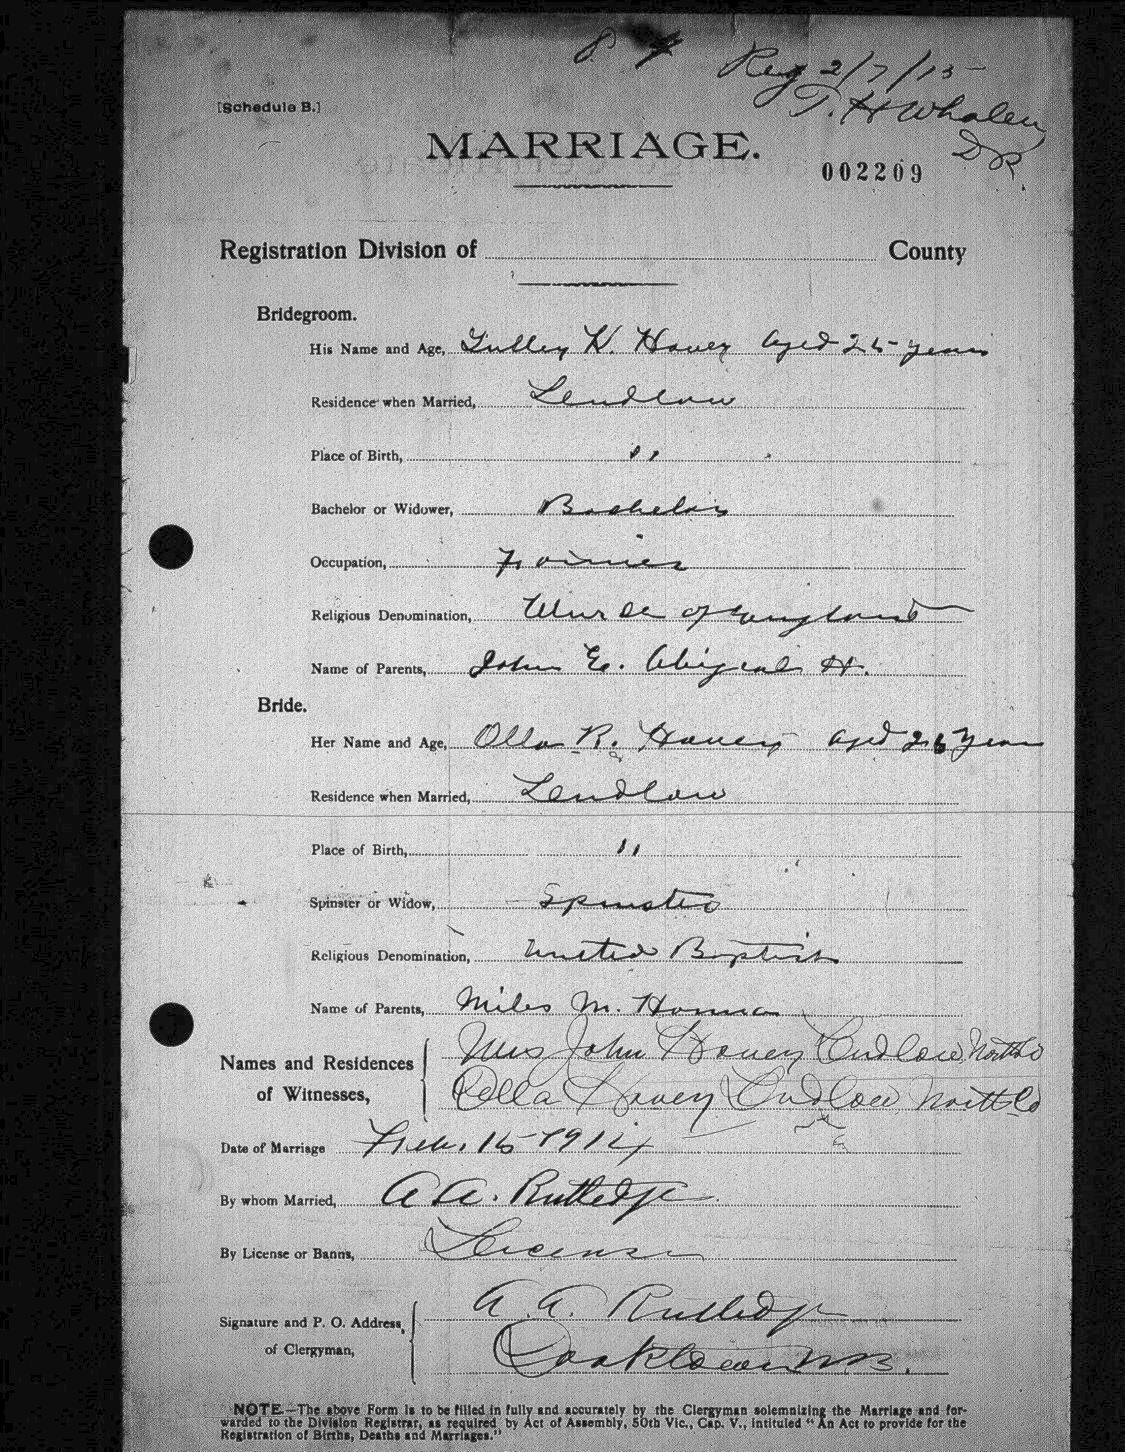 Reg 2/7/15
[Schedule B.]
T. H Whalen
MARRIAGE.
D R.
002209
Registration Division of County
Bridegroom.
His Name and Age, H. Hovey aged 25 years
Residence when Married, Lendlow
Place of Birth, "
Bachelor or Widower, Bachelor
Occupation, Farmer
Religious Denomination, of England
Name of Parents, John E. Abigial H.
Bride.
Her Name and Age, Olla R. Hovey aged 26 years
Residence when Married, Lendlow
Place of Birth, "
Spinster or Widow, Spinster
Religious Denomination, United Baptist
Name of Parents, Miles M. Hanna
Names and Residences of Witnesses, Mrs John Hovey Ludlow North Co
Olla Hovey Ludlow North Co
Date of Marriage Feb. 15 1914
By whom Married, A A. Rutledge
By License or Banns, License
Signature and P. O. Address, A. A. Rutledge
of Clergyman, Doaktown N B.
NOTE.—The above Form is to be filled in fully and accurately by the Clergyman solemnizing the Marriage and for-
warded to the Division Registrar, as required by Act of Assembly, 50th Vic., Cap. V., intituled "An Act to provide for the
Registration of Births, Deaths and Marriages."